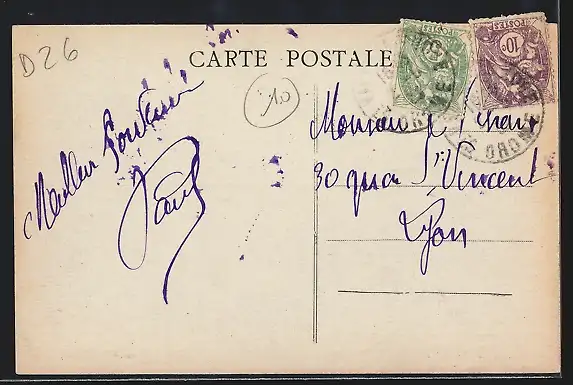 D26
CARTE POSTALE
10
POSTES
POSTES
10
Meilleur Souvenir
Paul
Monsieur
30 quai St Vincent
Lyon